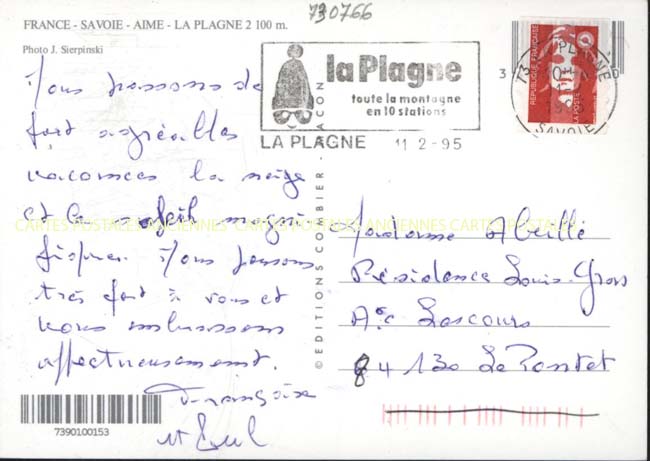 730766
FRANCE - SAVOIE - AIME - LA PLAGNE 2 100 m.
Photo J. Sierpinski
Nous passons de
fort agréables
vacances la neige
et le soleil magni
fiques. Nous pensons
très fort à vous et
vous embrassons
affectueusement.
Françoise
et
7390100153
© EDITIONS COMBIER - MACON
la Plagne
toute la montagne
en 10 stations
LA PLAGNE 11 2-95
73 LA PLAGNE
SAVOIE
REPUBLIQUE FRANÇAISE
LA POSTE
Madame Abeille
Résidence Louis Gros
Ac Lascours
84130 Le Pontet
CARTES POSTALES ANCIENNES CARTES POSTALES ANCIENNES CARTES POSTALES